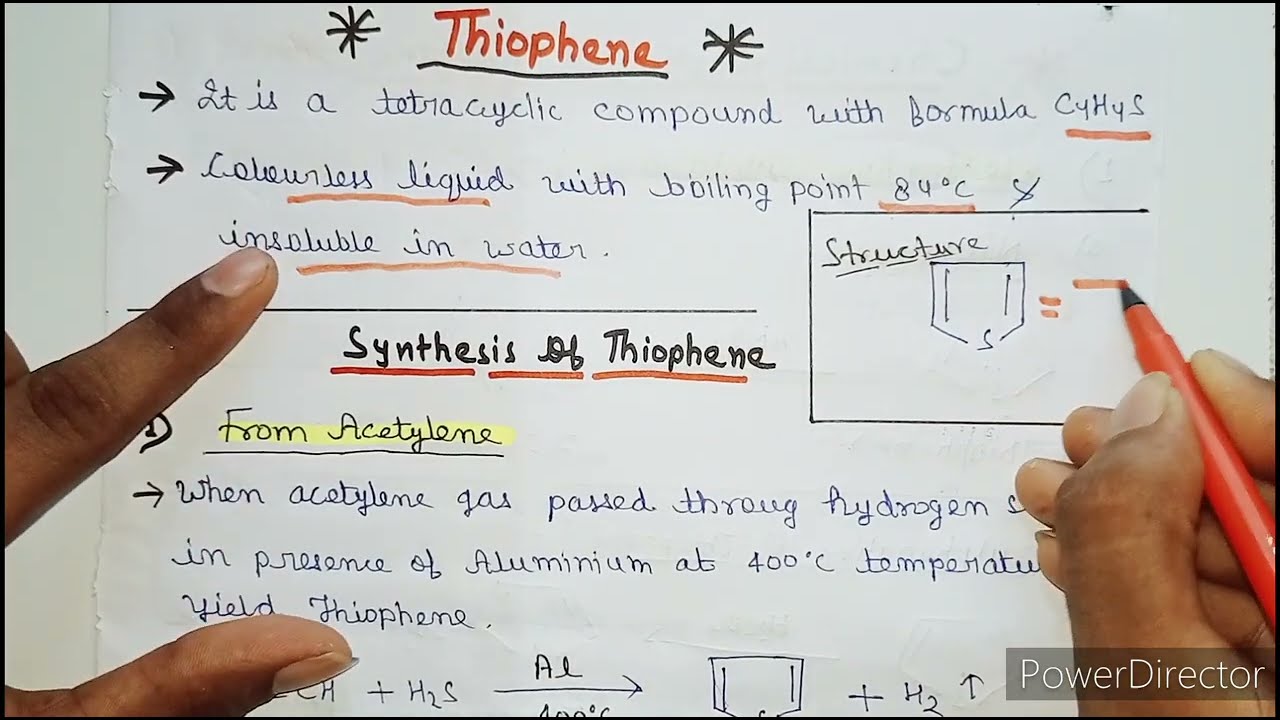 * Thiophene *
→ It is a tetracyclic compound with formula C4H4S
→ Colourless liquid with boiling point 84°C &
insoluble in water.
Structure
S
=
Synthesis of Thiophene
1) From Acetylene
→ When acetylene gas passed throug hydrogen s
in presence of Aluminium at 400°C temperatu
yield Thiophene.
CH + H2S Al 400°C → S + H2 ↑
PowerDirector